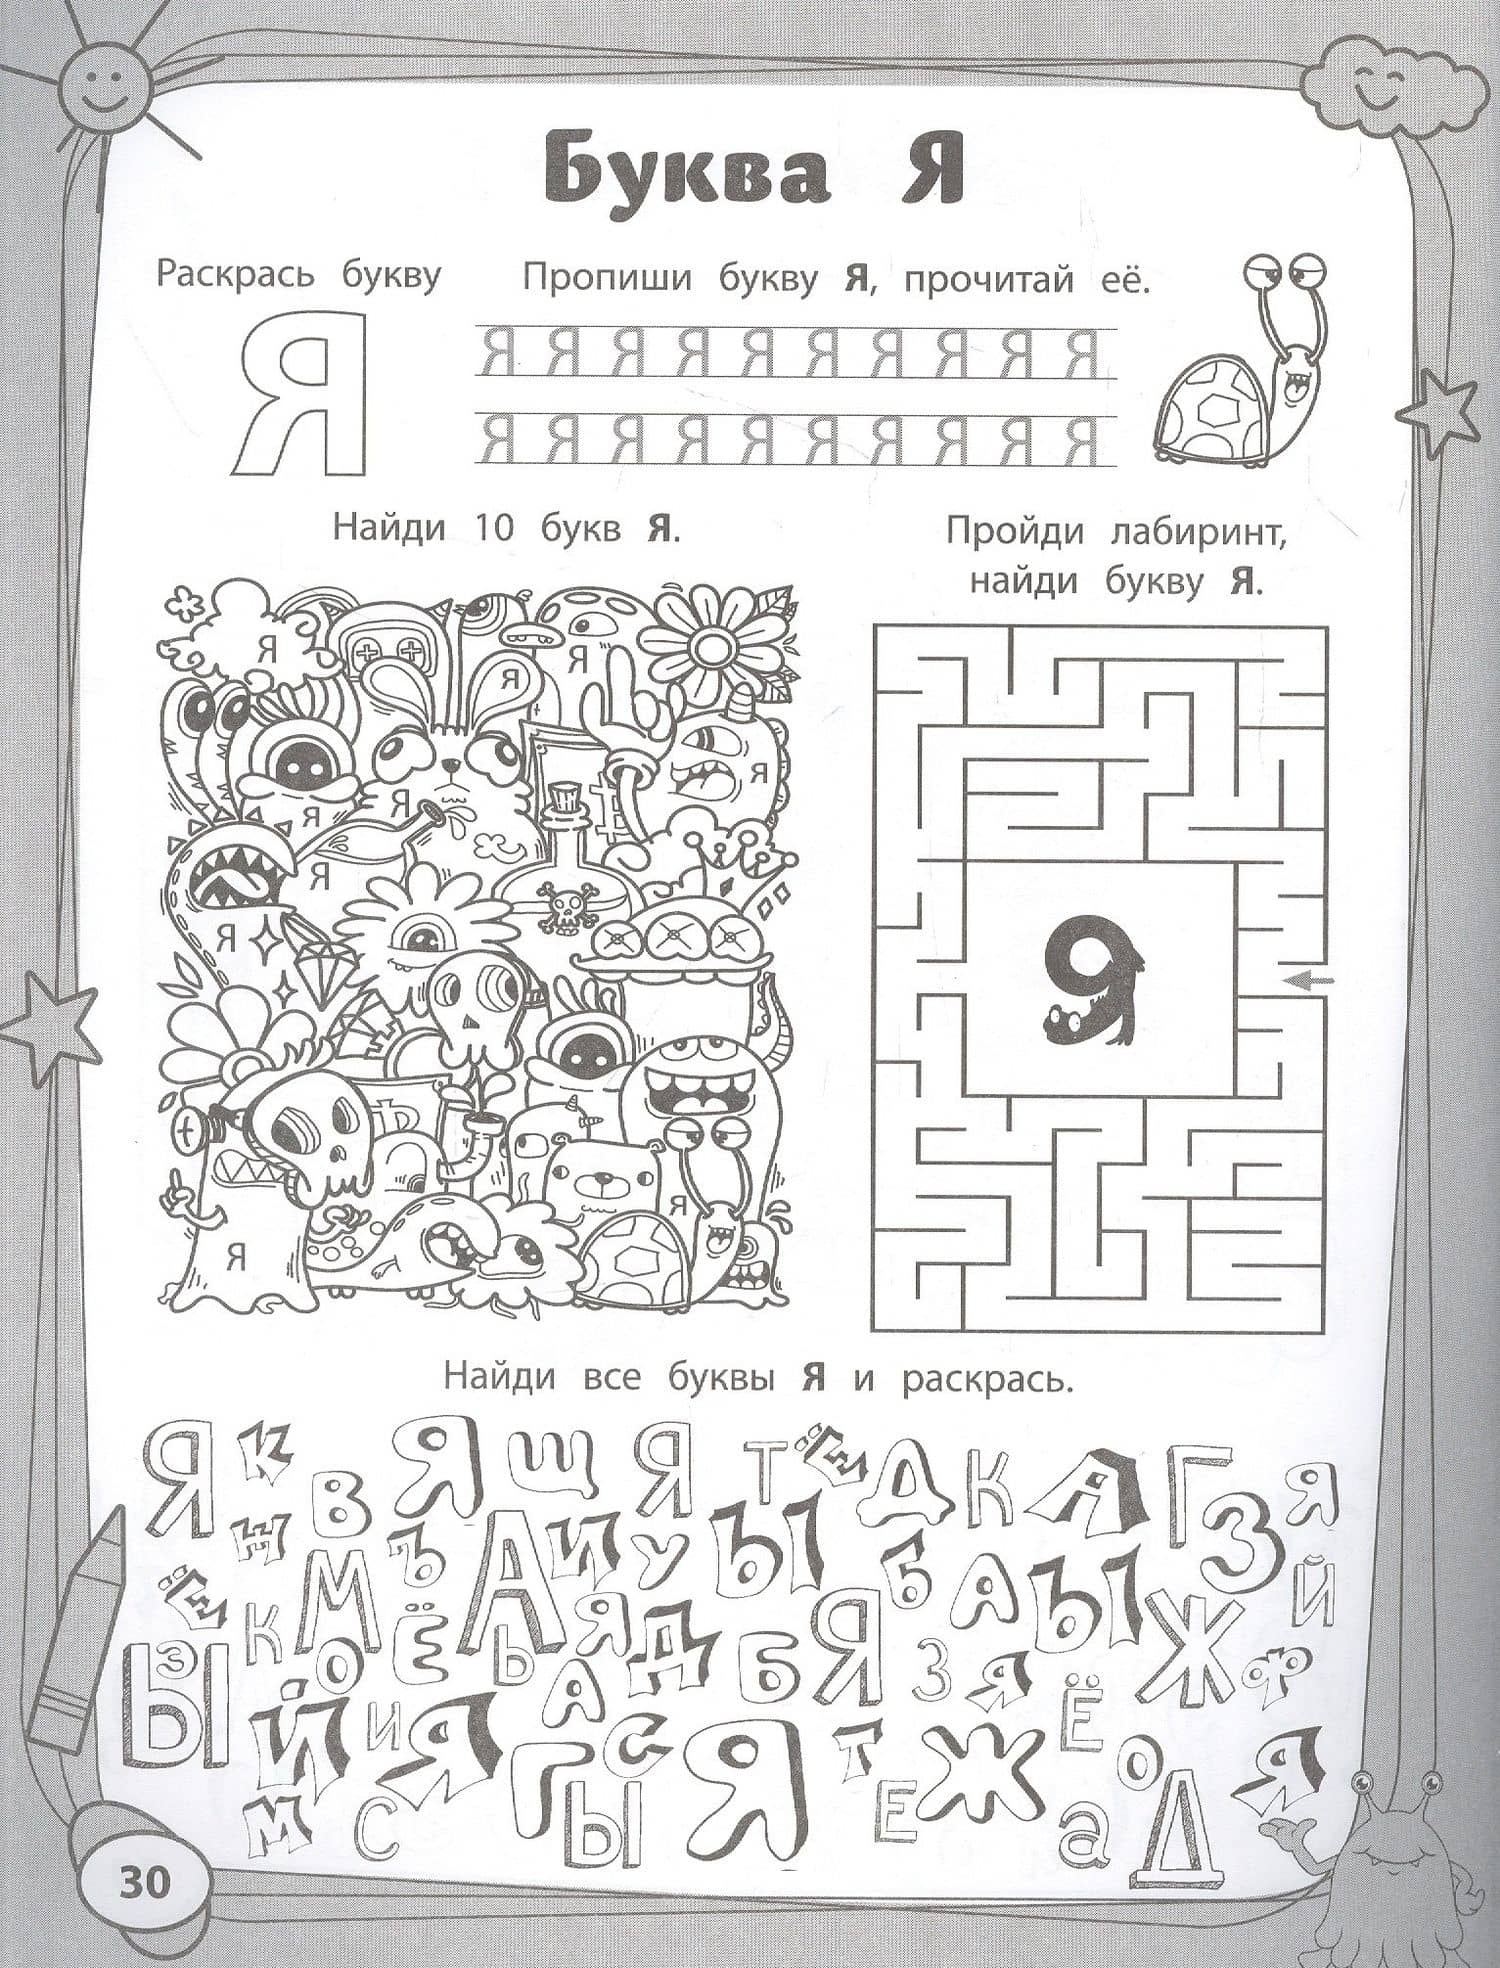 Буква Я
Раскрась букву
Пропиши букву Я, прочитай её.
Я
Я Я Я Я Я Я Я Я Я Я
Я Я Я Я Я Я Я Я Я Я
Найди 10 букв Я.
Пройди лабиринт,
найди букву Я.
Я
Я
Я
Я
Я
Я
Я
Я
Я
Я
Я
Найди все буквы Я и раскрась.
Я К В Я Щ Я Т Ё Д К А Г З Я
Н М Ъ А И У Ы Б А Ы Ж Й
Ё К О Ё Ь Я Д Б Я З Я Ф
Ы З Й И Я А С Я Т Ж Ё О Я
М С Г Ы Е а Д
30